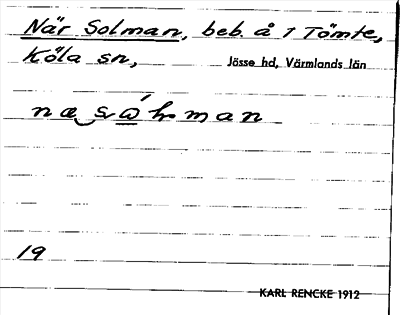 När Solman, beb. å 1 Tömte,
Köla sn,
Jösse hd, Värmlands län
19
KARL RENCKE 1912